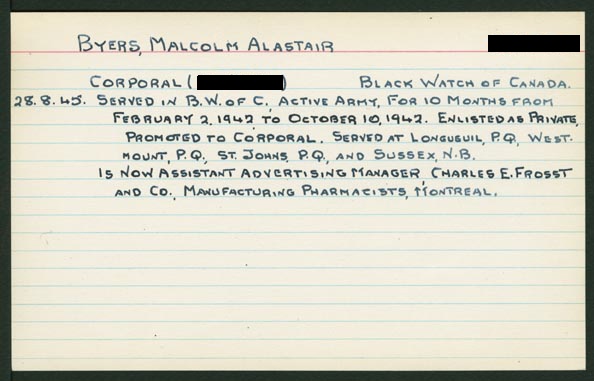 BYERS, MALCOLM ALASTAIR
CORPORAL ( ) BLACK WATCH OF CANADA.
28.8.45. SERVED IN B.W. OF C., ACTIVE ARMY, FOR 10 MONTHS FROM
FEBRUARY 2, 1942 TO OCTOBER 10, 1942. ENLISTED AS PRIVATE,
PROMOTED TO CORPORAL. SERVED AT LONGUEUIL, P.Q., WEST-
MOUNT, P.Q., ST. JOHNS, P.Q., AND SUSSEX, N.B.
IS NOW ASSISTANT ADVERTISING MANAGER, CHARLES E. FROSST
AND CO., MANUFACTURING PHARMACISTS, MONTREAL.